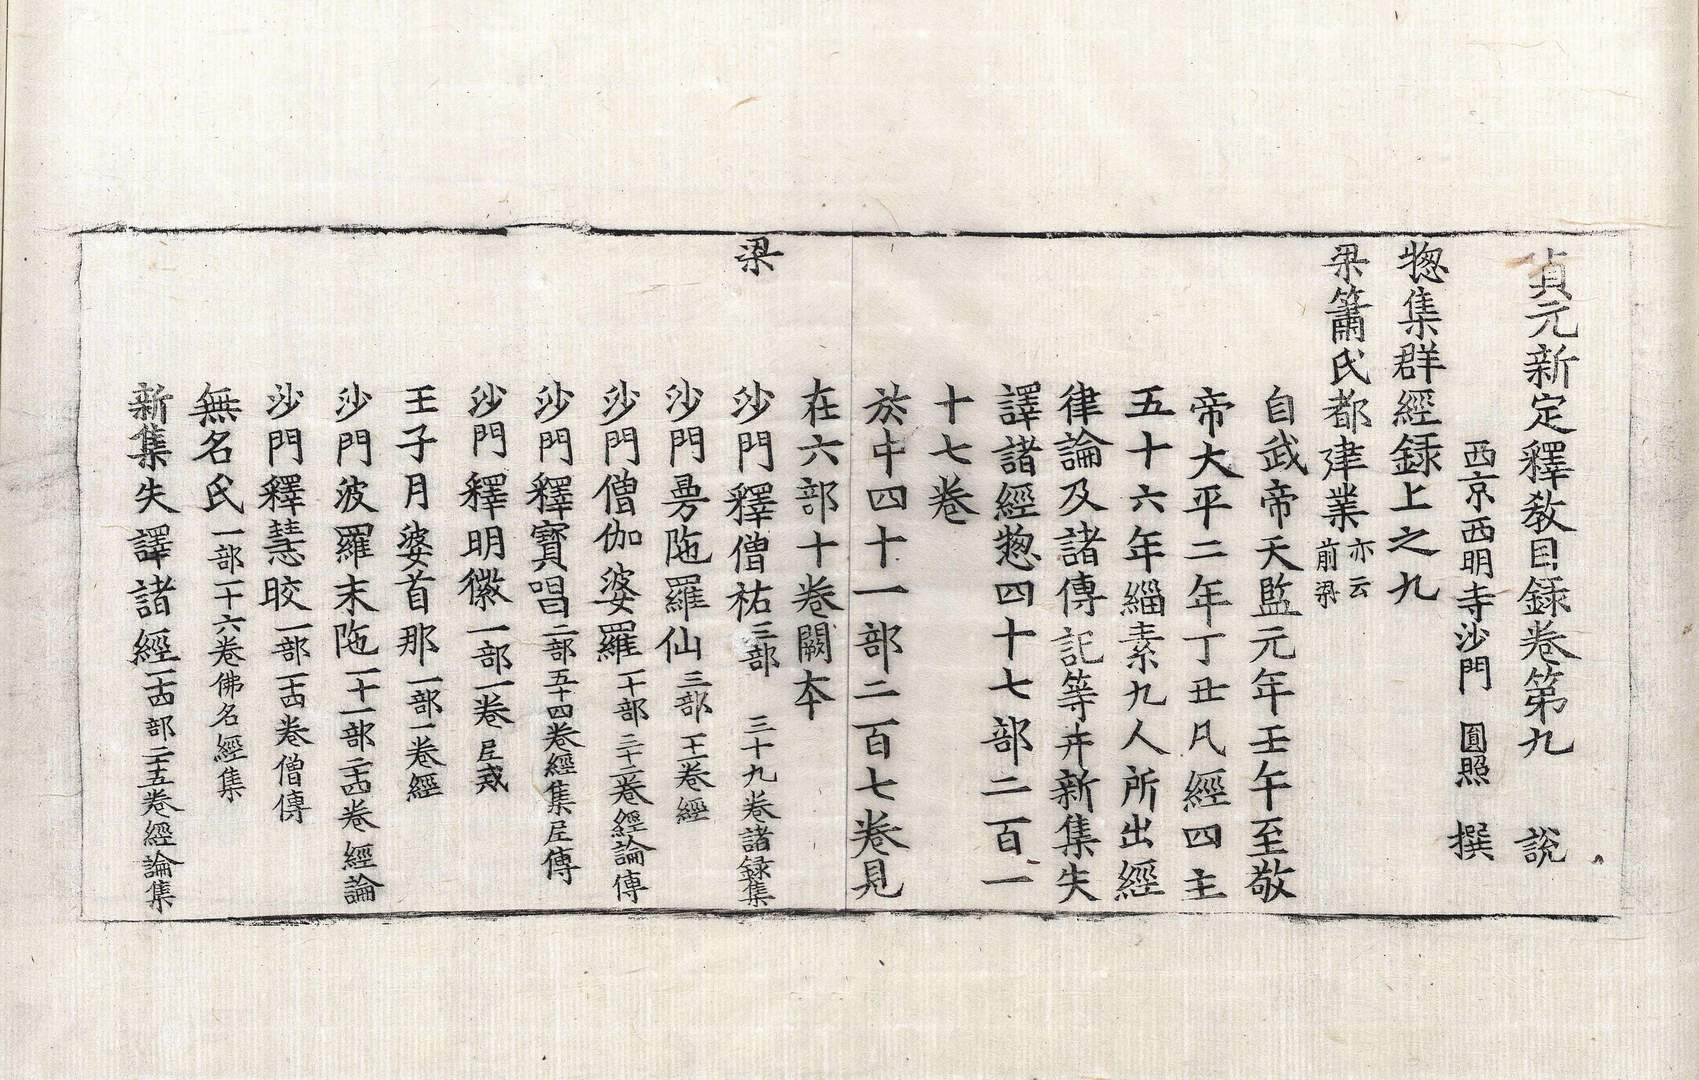 貞元新定釋教目録卷第九　說
西京西明寺沙門　圓照　撰
惣集群經録上之九
梁簫氏都建業亦云前梁
自武帝天監元年壬午至敬
帝大平二年丁丑凡經四主
五十六年緇素九人所出經
律論及諸傳記等并新集失
譯諸經惣四十七部二百一
十七卷
於中四十一部二百七卷見
在六部十卷闕本
梁　沙門釋僧祐三部　三十九卷諸録集
沙門曼陁羅仙三部一十一卷經
沙門僧伽婆羅一十部三十二卷經論傳
沙門釋寶唱二部五十四卷經集尼傳
沙門釋明徽一部一卷尼戒
王子月婆首那一部一卷經
沙門波羅末陁一十一部二十四卷經論
沙門釋慧皎一部一十四卷僧傳
無名氏一部一十六卷佛名經集
新集失譯諸經一十四部二十五卷經論集